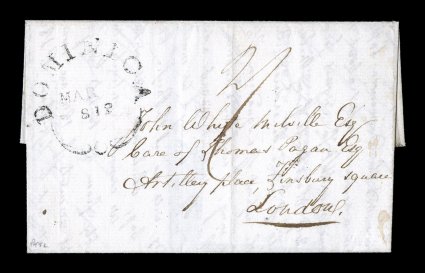 DOMINICA
MAR
2/
John White Melville Esq
Care of Thomas Fagan Esq
Artillery place, Finsbury square
London.